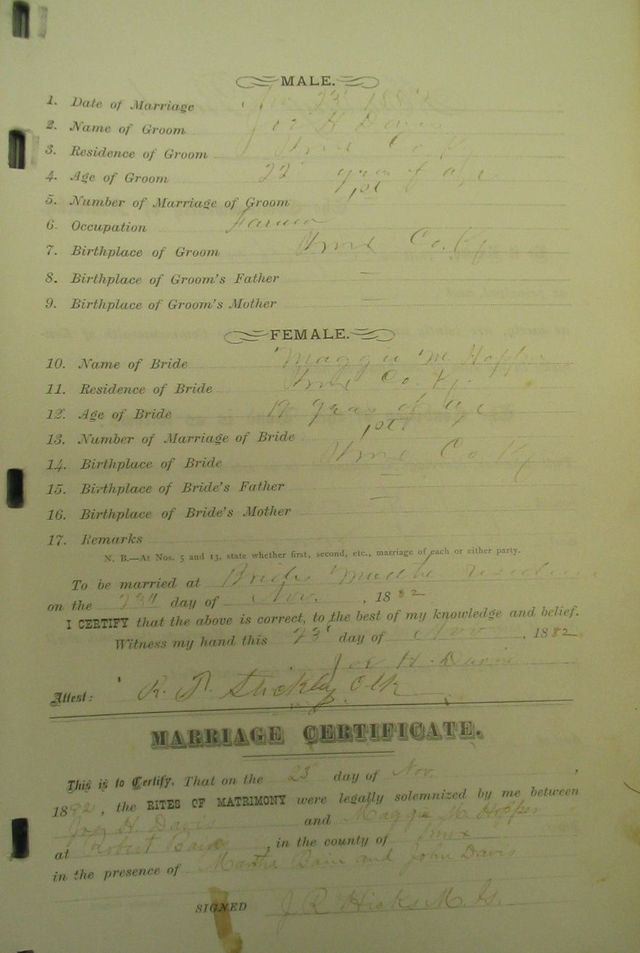 MALE.
1. Date of Marriage Nov 23' 1882
2. Name of Groom Joe H Davis
3. Residence of Groom Co. Ky
4. Age of Groom 22 years of age
5. Number of Marriage of Groom 1st
6. Occupation Farmer
7. Birthplace of Groom Co. Ky
8. Birthplace of Groom's Father —
9. Birthplace of Groom's Mother —
FEMALE.
10. Name of Bride Maggie M Hopper
11. Residence of Bride Co. Ky.
12. Age of Bride 19 years of age
13. Number of Marriage of Bride
14. Birthplace of Bride Co Ky
15. Birthplace of Bride's Father —
16. Birthplace of Bride's Mother —
17. Remarks
N. B.—At Nos. 5 and 13, state whether first, second, etc., marriage of each or either party.
To be married at Brides
on the 23d day of Nov. , 1882
I CERTIFY that the above is correct, to the best of my knowledge and belief.
Witness my hand this 23' day of Nov , 1882
Joe H. Davis
Attest: R. Stickley Clk
MARRIAGE CERTIFICATE.
This is to Certify, That on the 23 day of Nov. ,
18 , the RITES OF MATRIMONY were legally solemnized by me between
H. Davis and Maggie M. Hopper
at Robert , in the county of
in the presence of Martha Bain and John Davis
SIGNED J R Hicks M. G.